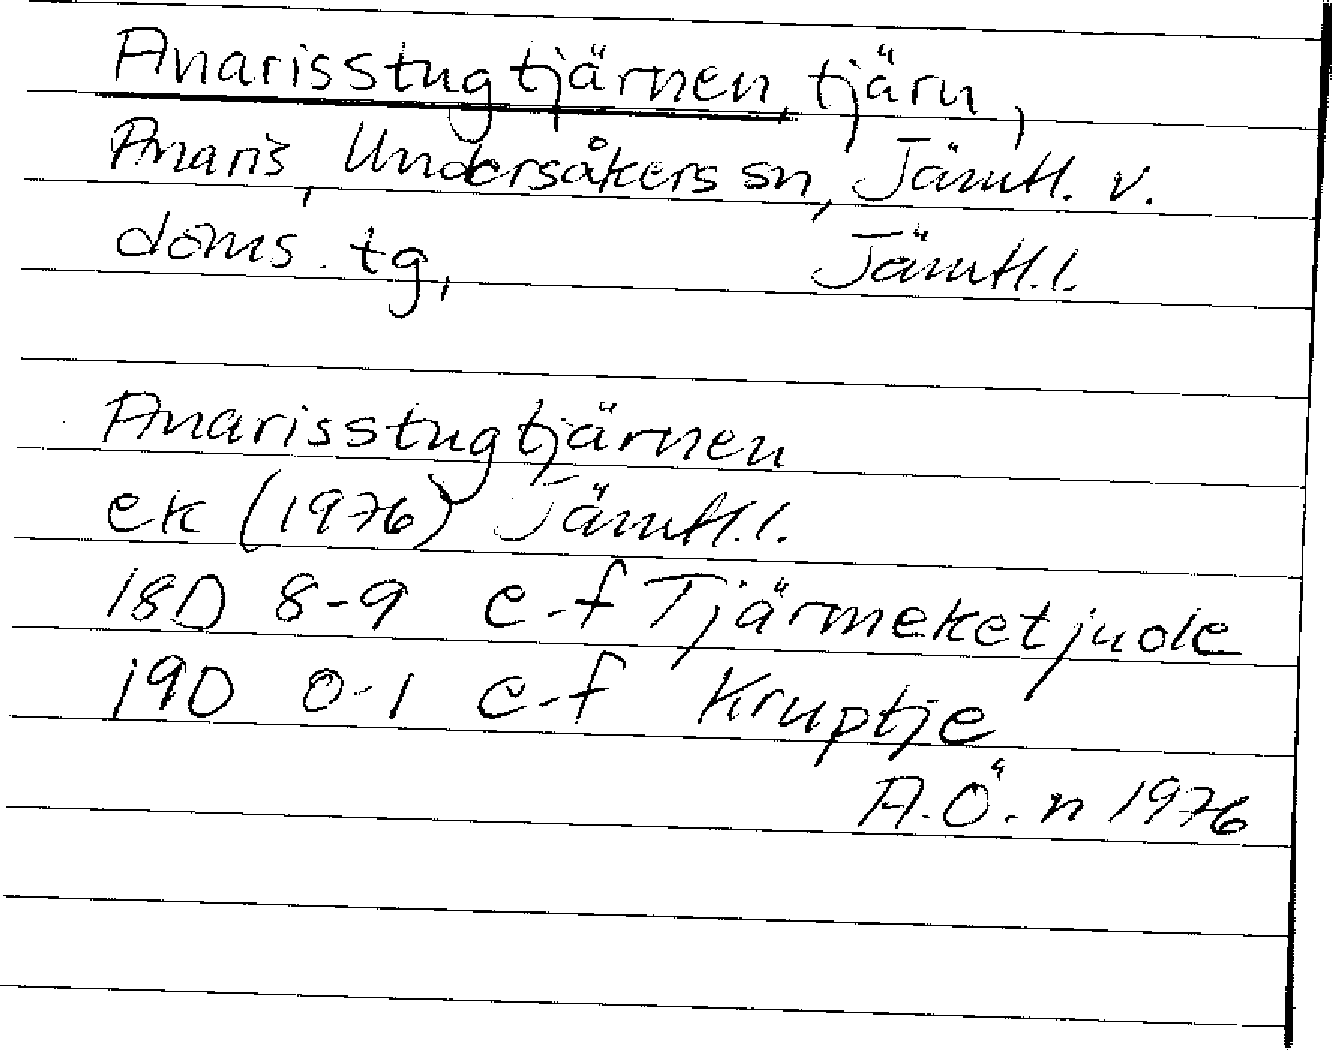 Anarisstugtjärnen, tjärn,
Anaris, Undersåkers sn, Jämtl. v.
doms. tg, Jämtl.l.
Anarisstugtjärnen
ek (1976) Jämtl.l.
18D 8-9 e-f Tjärmeketjude
19D 0-1 e-f Kruptje
A.Ö.n 1976